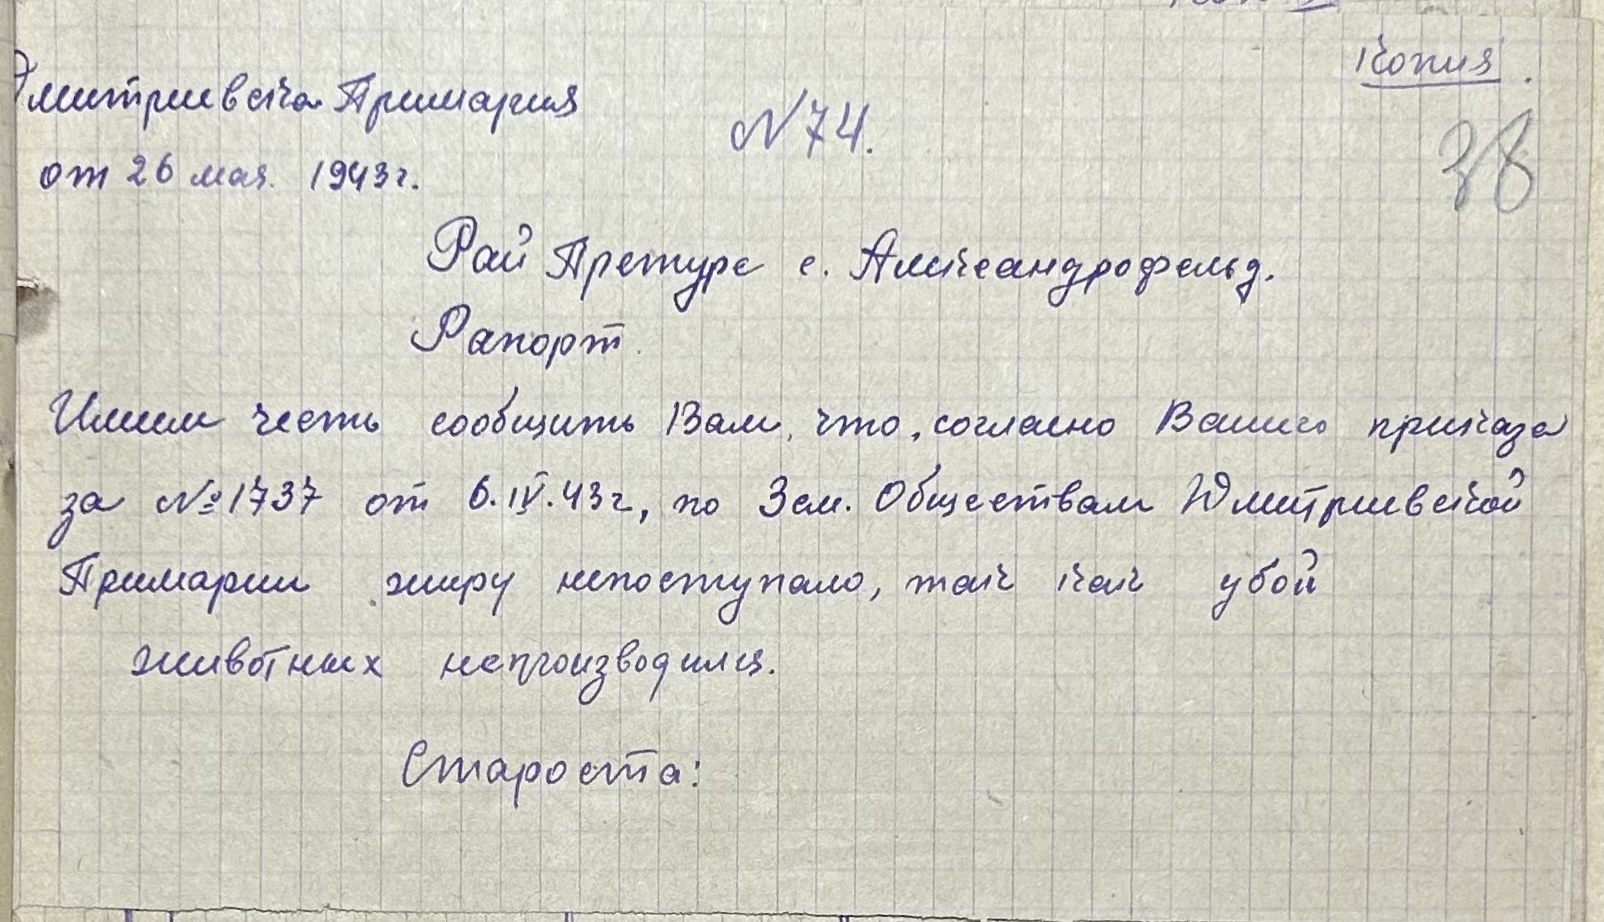 Копия.
Дмитриевска Примария
№74.
38
от 26 мая 1943г.
Рай Претуре с. Александрофельд.
Рапорт
Имеем честь сообщить Вам, что, согласно Вашего приказа
за №1737 от 6.IV.43г, по Зем. Обществам Дмитриевской
Примарии жиру непоступало, так как убой
животных непроизводился.
Староста: